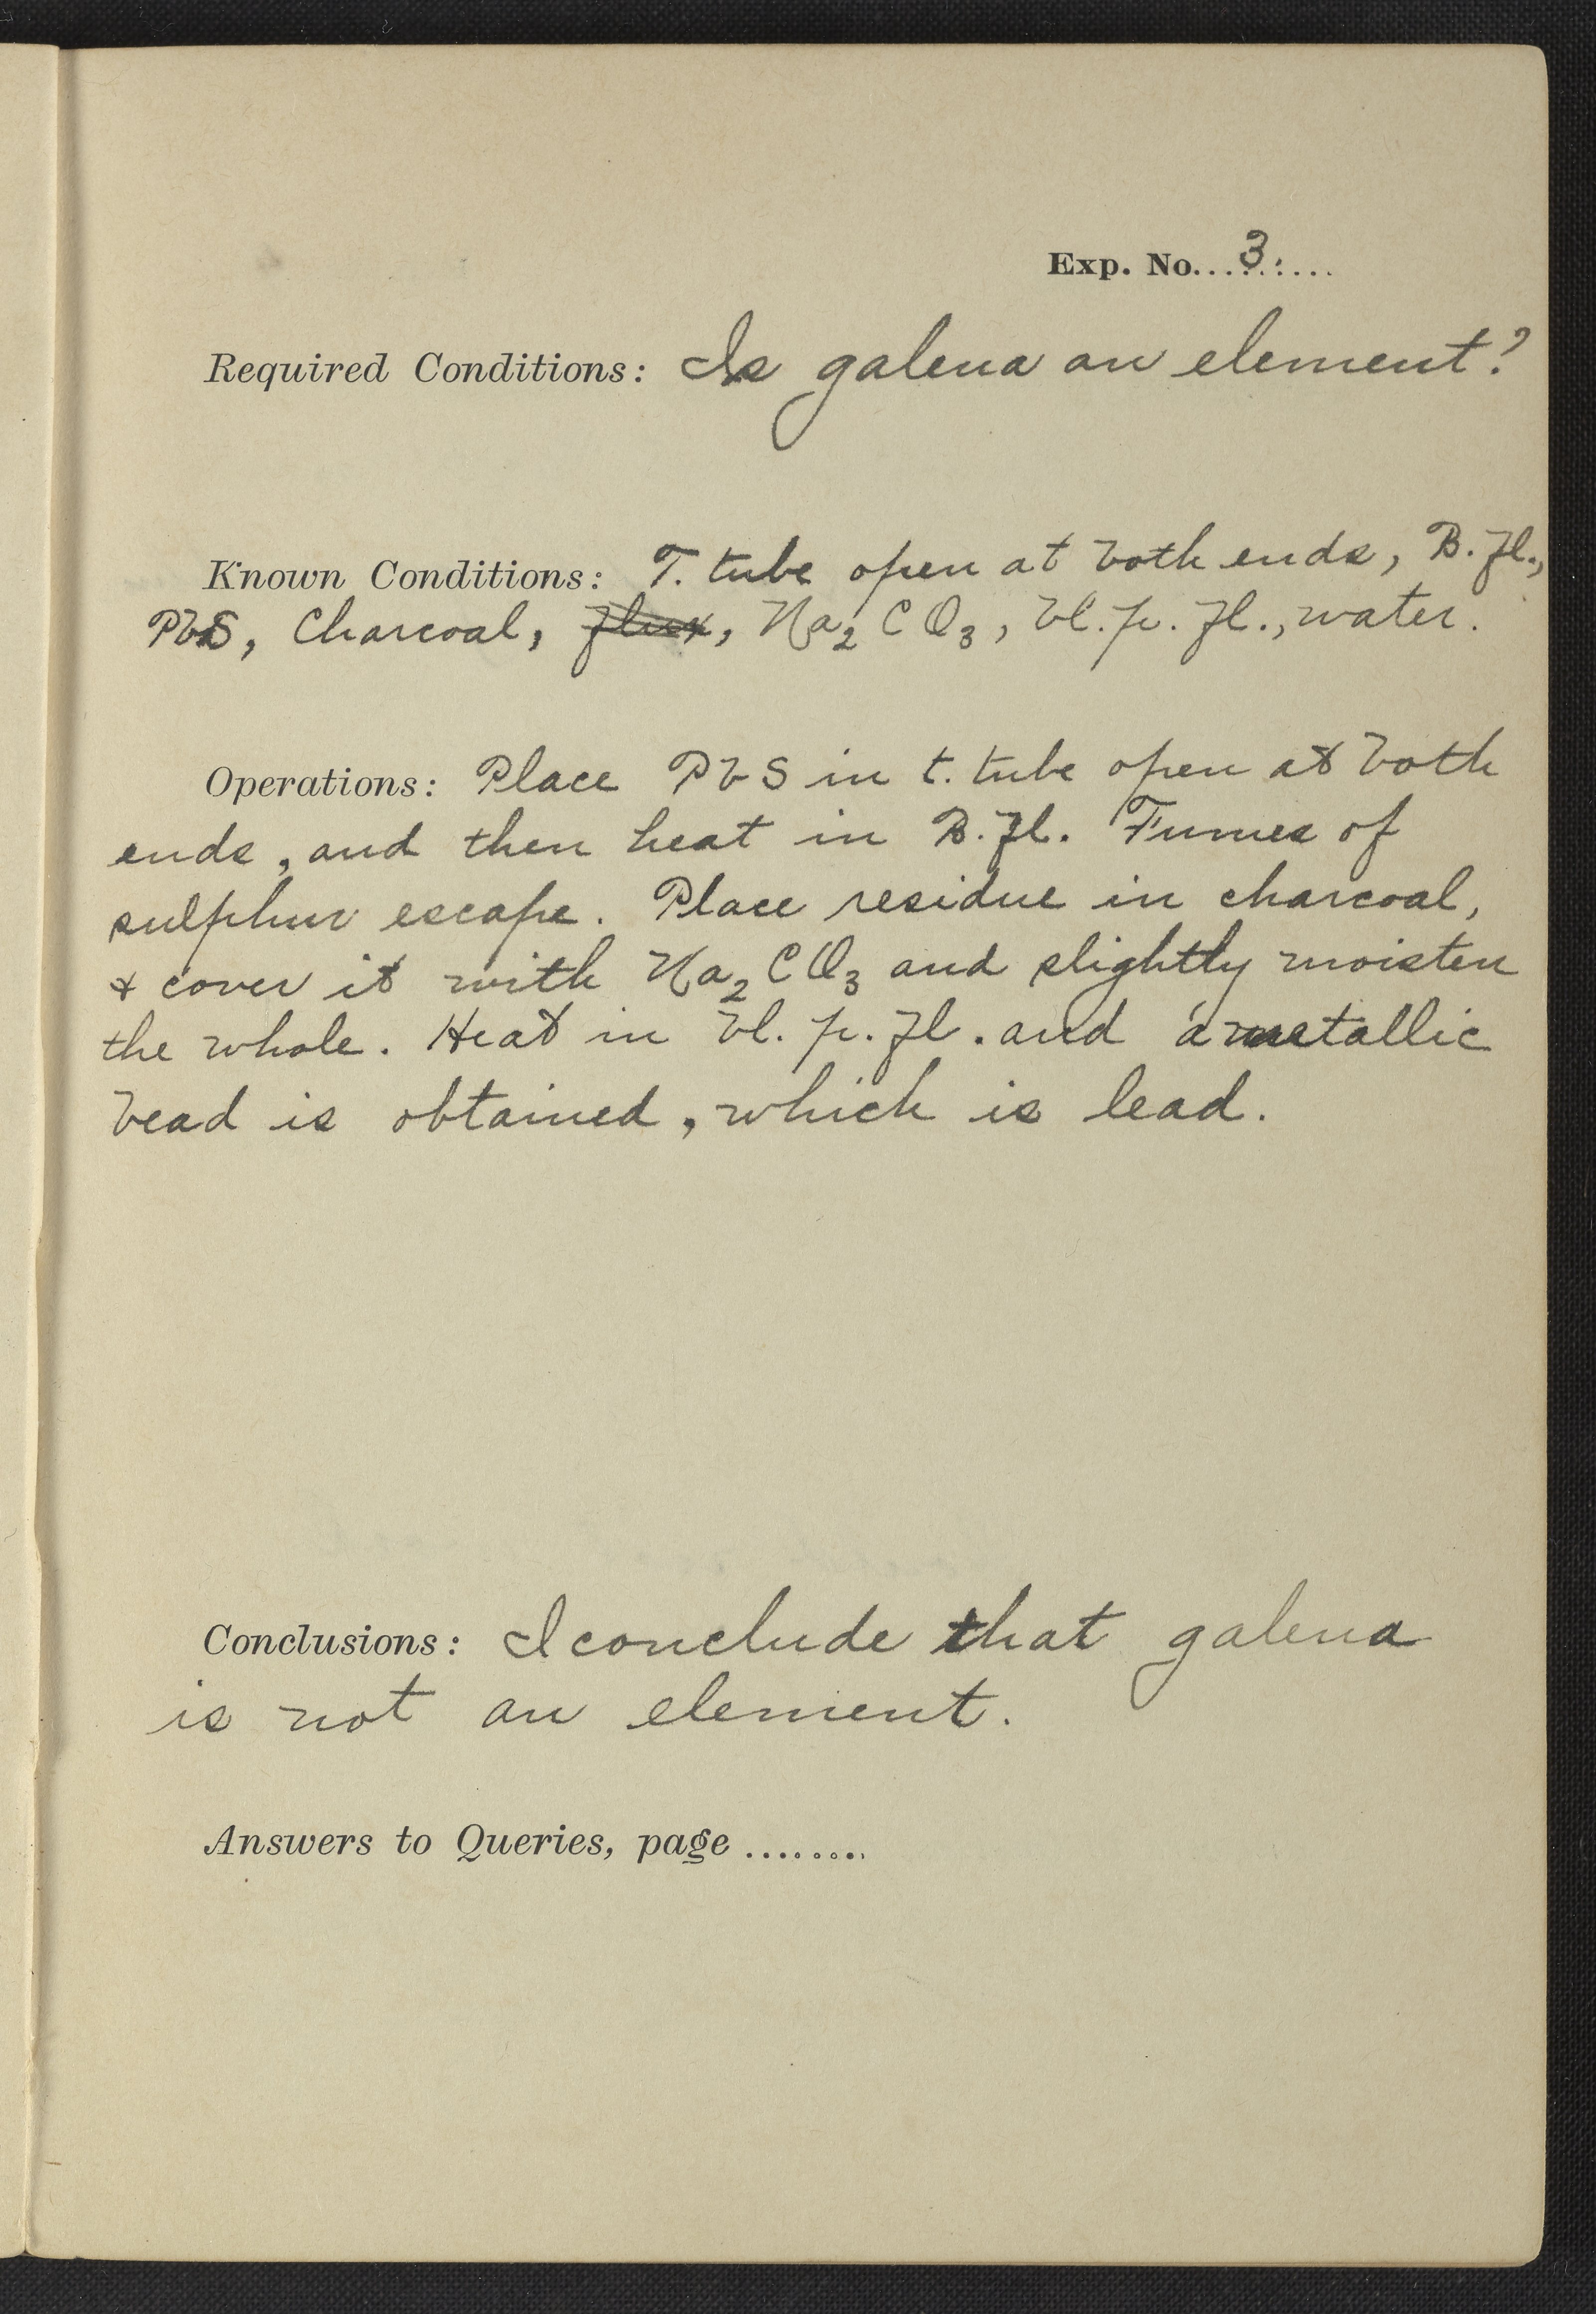 Exp. No. 3.
Required Conditions: Is galena an element?
Known Conditions: T. tube open at both ends, B. fl.,
PbS, Charcoal, flux, Na2CO3, bl. p. fl., water.
Operations: Place PbS in t. tube open at both
ends, and then heat in B. fl. Fumes of
sulphur escape. Place residue in charcoal,
& cover it with Na2CO3 and slightly moisten
the whole. Heat in bl. p. fl. and a metallic
bead is obtained, which is lead.
Conclusions: I conclude that galena
is not an element.
Answers to Queries, page ........